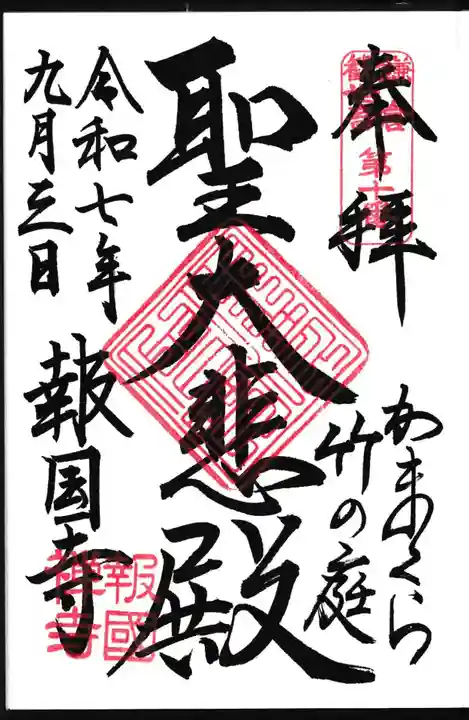 奉拝
かまくら
竹の庭
聖大悲殿
令和七年
九月三日
報国寺
報國
禅寺